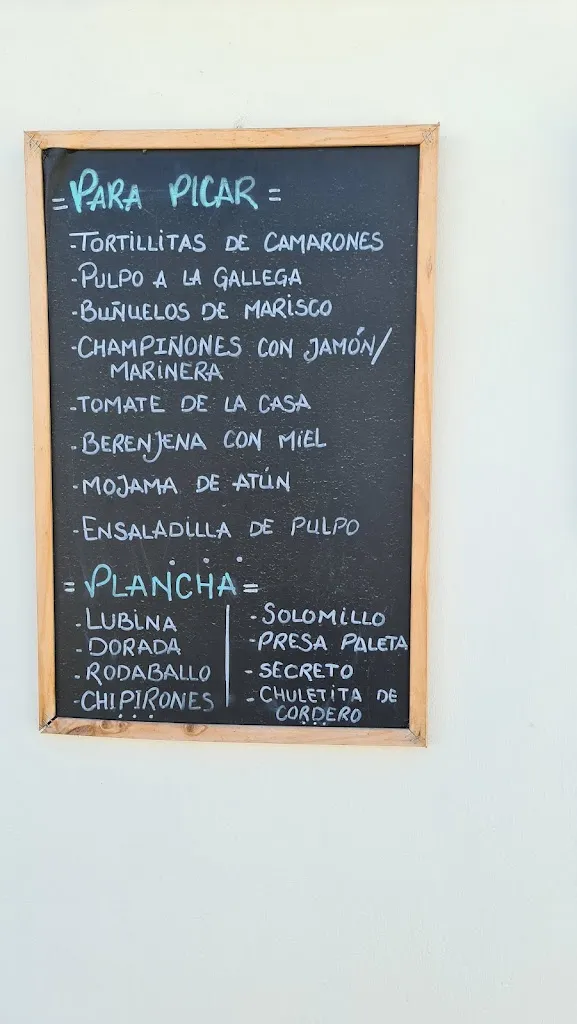 =PARA PICAR=
-TORTILLITAS DE CAMARONES
-PULPO A LA GALLEGA
-BUÑUELOS DE MARISCO
-CHAMPIÑONES CON JAMÓN/
MARINERA
-TOMATE DE LA CASA
-BERENJENA CON MIEL
-MOJAMA DE ATÚN
-ENSALADILLA DE PULPO
...
=PLANCHA=
-LUBINA
-DORADA
-RODABALLO
-CHIPIRONES
...
-SOLOMILLO
-PRESA PALETA
-SECRETO
-CHULETITA DE
CORDERO
...